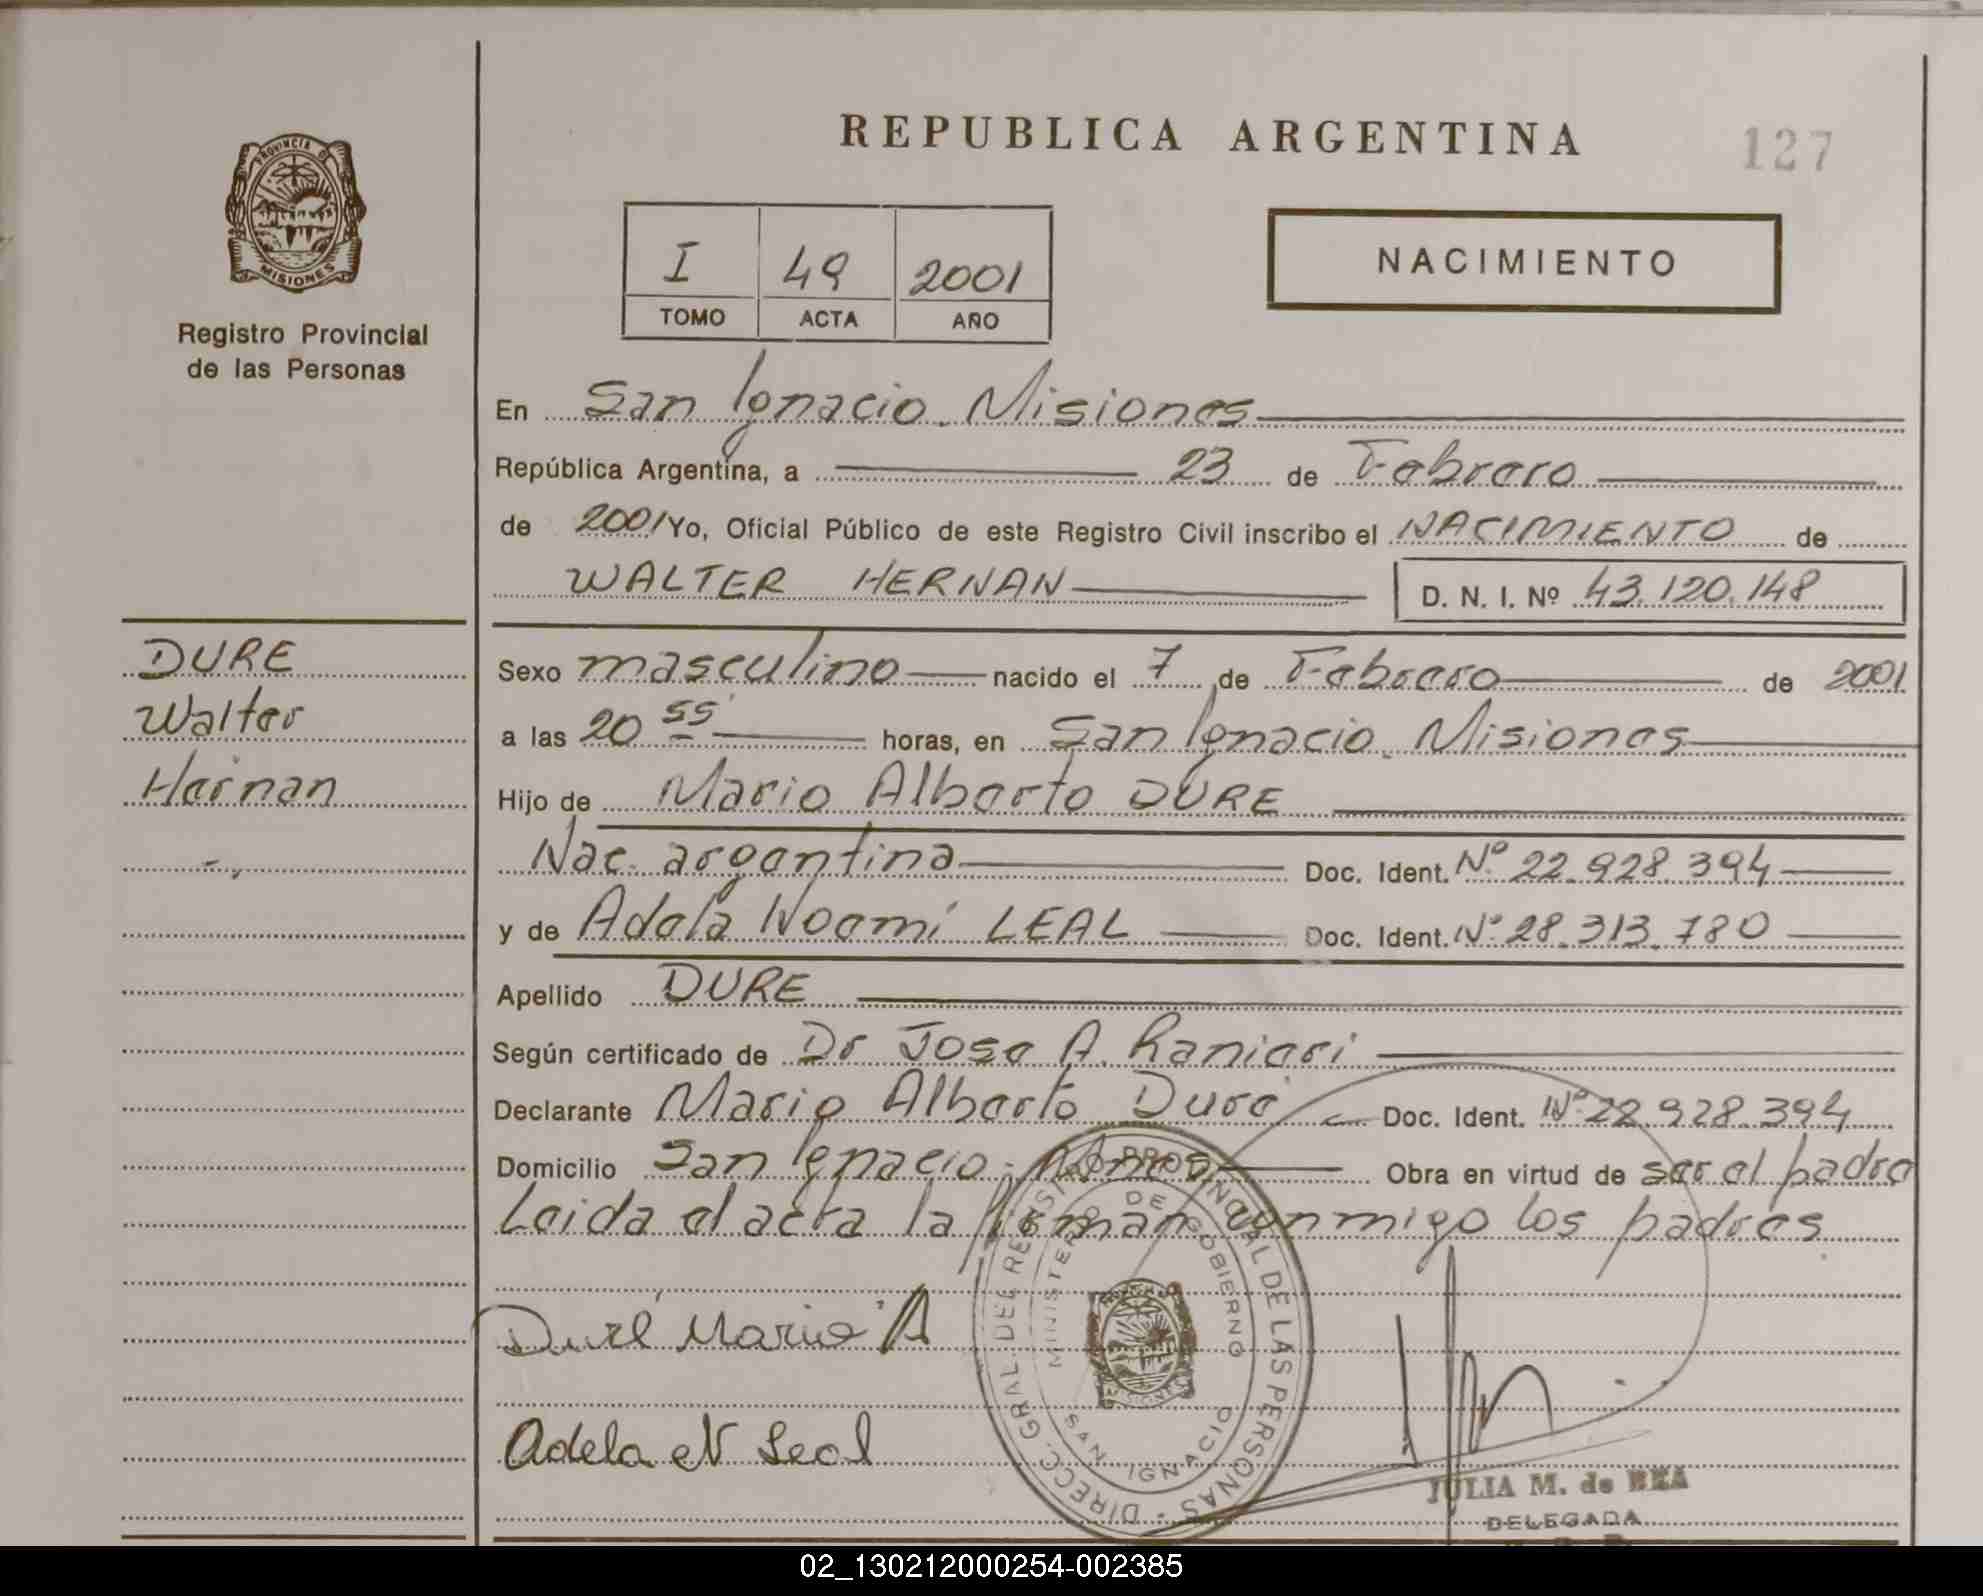 REPUBLICA ARGENTINA
127
PROVINCIA D
MISIONES
Registro Provincial
de las Personas
I 49 2001
TOMO ACTA AÑO
NACIMIENTO
En San Ignacio. Misiones
República Argentina, a 23 de Febrero
de 2001 Yo, Oficial Público de este Registro Civil inscribo el NACIMIENTO de
WALTER HERNAN D. N. I. Nº 43.120.148
DURE
Walter
Hernan
Sexo masculino nacido el 7 de Febrero de 2001
a las 20 55' horas, en San Ignacio. Misiones
Hijo de Mario Alberto DURE
Nac. argentina Doc. Ident. Nº 22.928.394
y de Adela Noemí LEAL Doc. Ident. Nº 28.313.780
Apellido DURE
Según certificado de Dr Jose A. Ranieri
Declarante Mario Alberto Dure Doc. Ident. Nº 22.928.394
Domicilio San Ignacio. Mnes Obra en virtud de ser el padre
Leida el acta la firman conmigo los padres
Duré Mario A
Adela N Leal
DIRECC. GRAL. DEL REGISTRO PROVINCIAL DE LAS PERSONAS
MINISTERIO DE GOBIERNO
SAN IGNACIO
JULIA M. de REA
DELEGADA
02_130212000254-002385